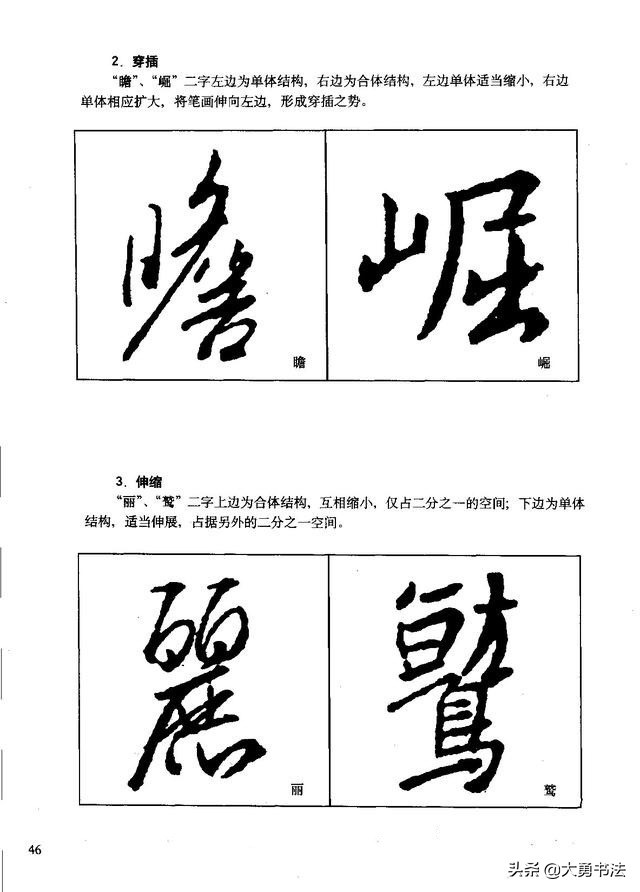 2．穿插
“瞻”、“崛”二字左边为单体结构，右边为合体结构，左边单体适当缩小，右边
单体相应扩大，将笔画伸向左边，形成穿插之势。
瞻 崛
瞻 崛
3．伸缩
“丽”、“鹫”二字上边为合体结构，互相缩小，仅占二分之一的空间；下边为单体
结构，适当伸展，占据另外的二分之一空间。
麗 鷲
丽 鹫
46
头条 @大勇书法